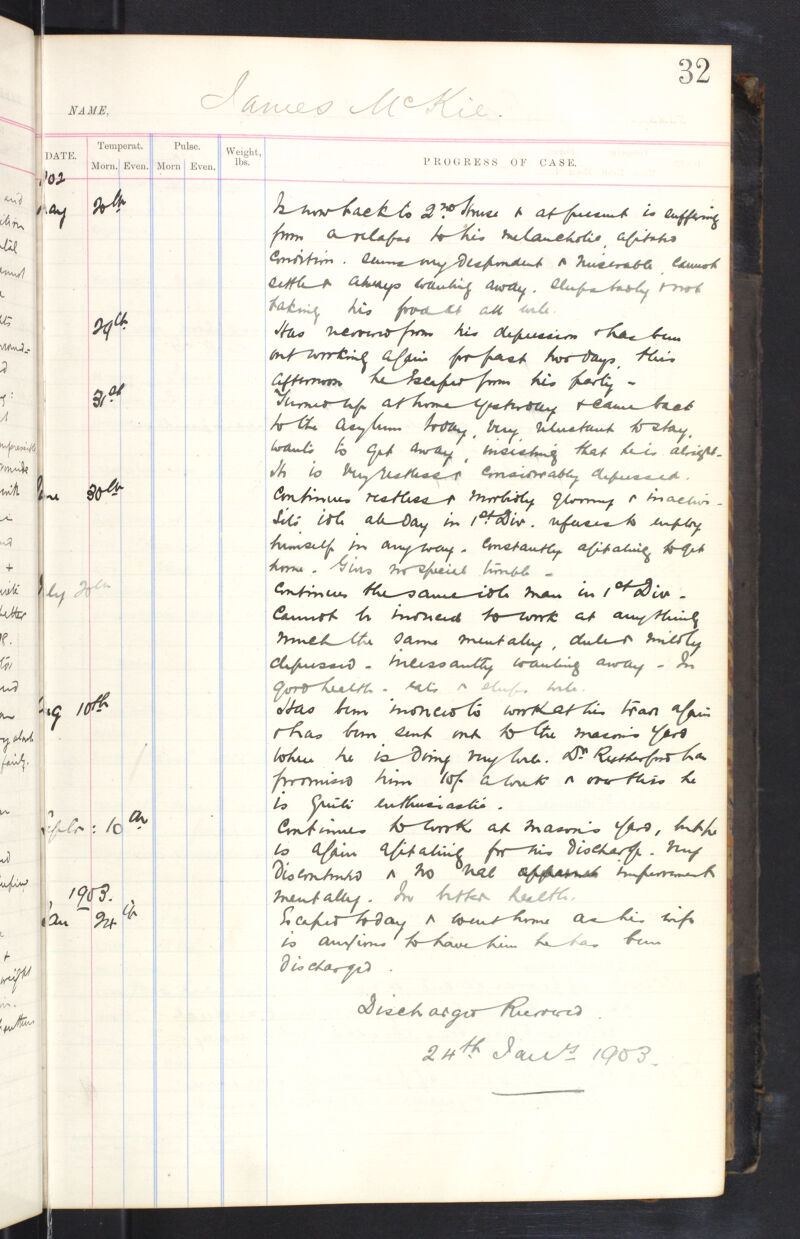 32
NAME, James McKie.
DATE. Temperat. Pulse. Weight, lbs. PROGRESS OF CASE.
Morn. Even. Morn Even.
May 20th Is now back to 2nd House & at present is suffering
from a relapse to his melancholic, agitated
condition. Seems very despondent & miserable, cannot
settle & always wanting away. Sleeps badly & not
taking his food at all well.
29th Has recovered from his depression & has been
out working again for past two days, this
afternoon he escaped from his party -
31st Turned up at home yesterday & came back
to the Asylum today, very reluctant to stay,
wants to get away, insisting that he is alright -
He is very restless & considerably depressed.
June 30th Continues restless & morbidly gloomy & inactive -
Sits idle all day in 1st Div. refuses to employ
himself in any way. Constantly agitating to get
home. Gives no special trouble -
July 20th Continues the same idle man in 1st Div -
Cannot be induced to work at anything
much the same mentally, dull & mildly
depressed - incessantly wanting away - In
good health - eats & sleeps well.
Aug 10th Has been induced to work at his trade again
& has been sent out to the mason's yard
where he is doing very well. Dr Rutherford has
promised him 10/- a week & over this he
is quite enthusiastic.
Septbr : 10th Continues to work at mason's yard, but he
is again agitating for his discharge. Very
discontented & no real apparent improvement
mentally. In better health.
1903.
Jan 24th Escaped today & went home as his wife
is anxious to have him he has been
discharged.
Discharged Recovered.
24th Jany 1903.